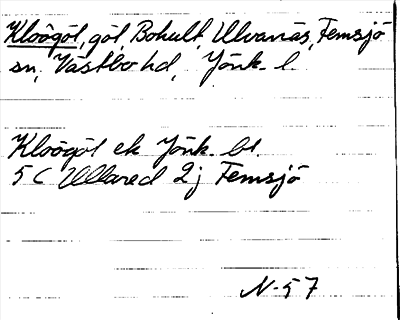 Klobgöl, göl, Bohult, Ulvanäs, Femsjö
sn, Västbo hd, Jönk. l
Klobgöl ek Jönk. bl.
5 C Ullared 2j Femsjö
N-57